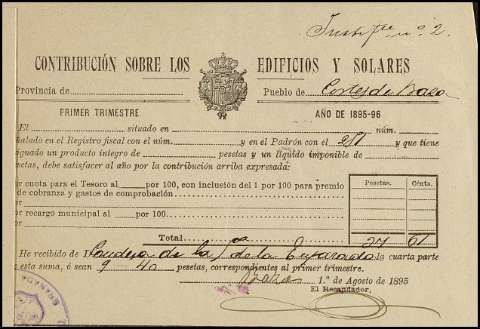 Justifte nº 2.
CONTRIBUCIÓN SOBRE LOS EDIFICIOS Y SOLARES
Provincia de Pueblo de Cortes de Baza
PRIMER TRIMESTRE AÑO DE 1895-96
El situado en núm.
ñalado en el Registro fiscal con el núm. y en el Padrón con el 281 y que tiene
signado un producto íntegro de pesetas y un líquido imponible de
etas, debe satisfacer al año por la contribución arriba expresada:
Pesetas. Cénts.
or cuota para el Tesoro al por 100, con inclusión del 1 por 100 para premio
de cobranza y gastos de comprobación.
or
or recargo municipal al por 100.
or
Total 37 61
He recibido de de la la cuarta parte
esta suma, ó sean 9 40 pesetas, correspondientes al primer trimestre.
Baza 1.º de Agosto de 1895
El Recaudador,